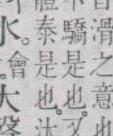 滑之意也
驕是也又
泰是也汰
水會大